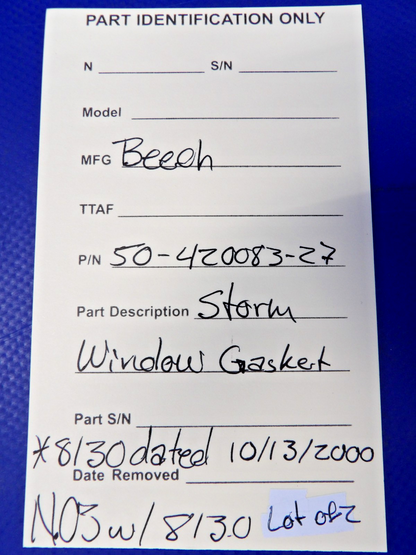 PART IDENTIFICATION ONLY
N S/N
Model
MFG Beech
TTAF
P/N 50-420083-27
Part Description Storm
Window Gasket
Part S/N
*8130 dated 10/13/2000
Date Removed
NOS w/ 8130 Lot of 2